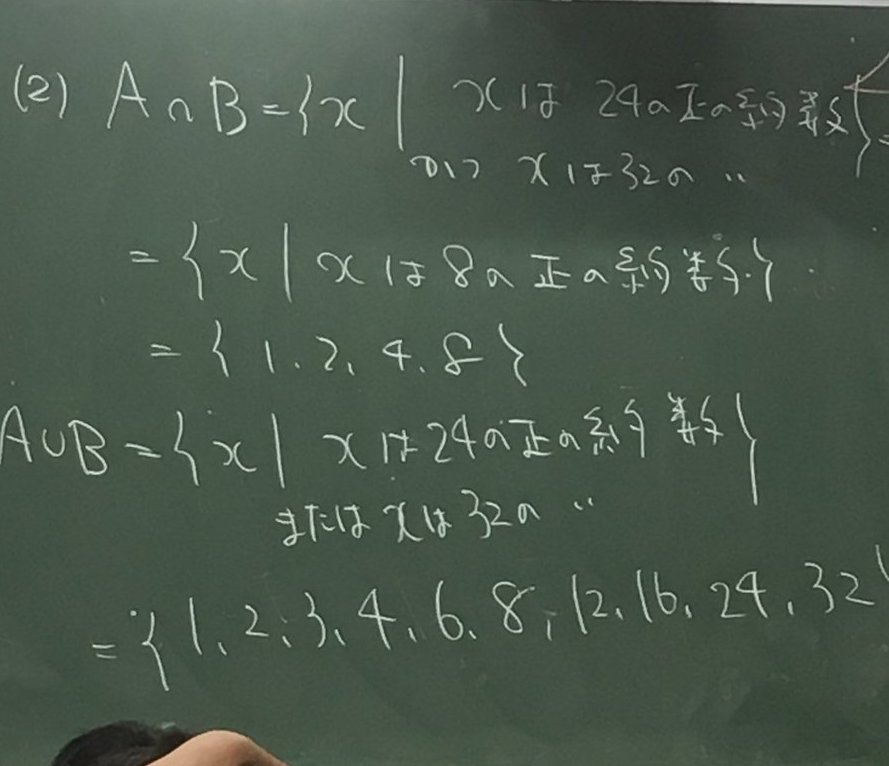 (2) A∩B={x| xは 24の正の約数}=
かつ xは32の 〃
={x|xは8の正の約数}
={1.2.4.8}
A∪B={x| xは24の正の約数}
または xは32の 〃
={1.2.3.4.6.8.12.16.24.32}